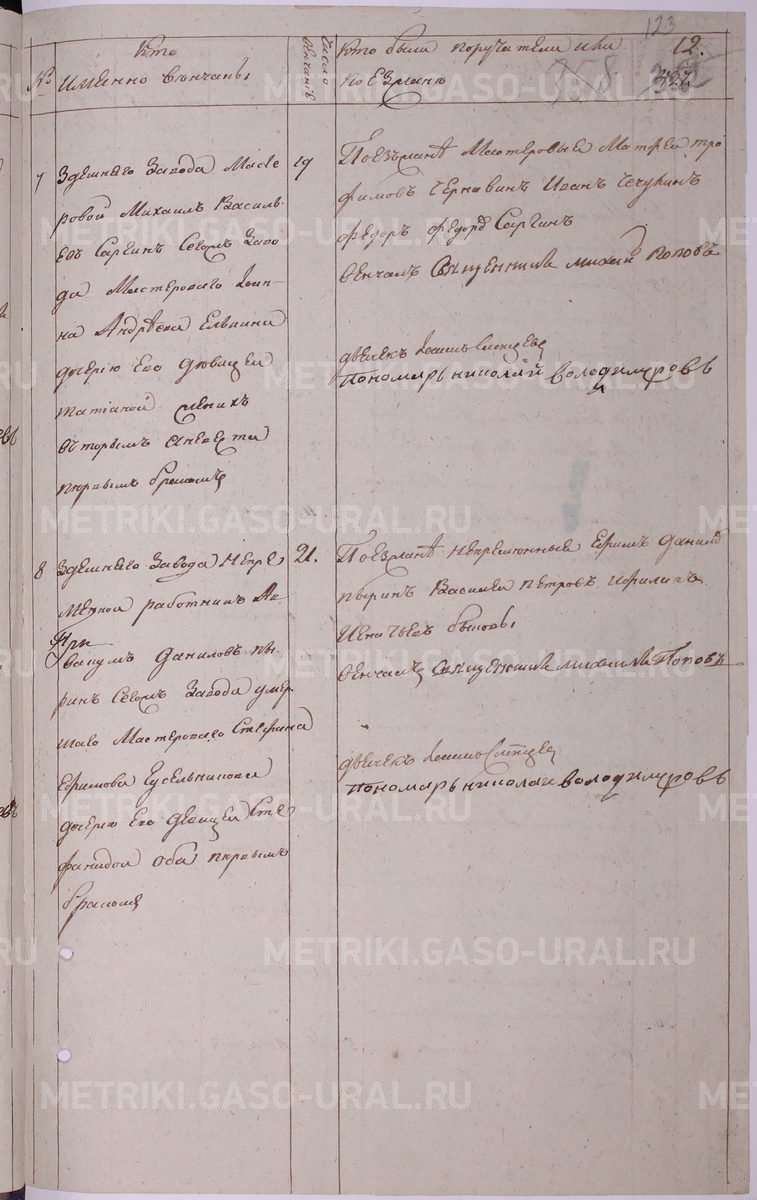 123
Кто
Именно Вѣнчаны
Число
Вѣнчанiѣ
Кто были поручатели или
поезжанѣ
12.
№
358
327
7
Здешнего Завода Масте
ровой Михаилъ Василь
евъ Саргинъ Сегожъ Заво
да Мастероваго Iоан
на Андрѣева Елькина
дочерiю Его Девицей
татiаной женихъ
вторымъ Аневеста
первымъ бракомъ
19
Поезжанѣ Мастеровые Матфей тро
фимовъ Чернавинъ Иванъ Чечулинъ
федоръ федоровъ Саргинъ
венчалъ Священникъ михаилъ Поповъ
дьячекъ
Пономарь николай володимровъ
8
Здешнего Завода Непре
менной работникъ Ав
вакумъ Даниловъ пы
ринъ Сегожъ Завода умер
шаго Мастероваго Стефана
Ефимова Гусельникова
дочерiю Его Девицей Сте
фанидой оба первымъ
бракомъ
21.
Поезжанѣ Непременные Ефимъ Данил
пыринъ Василей Петровъ ифилипъ
Игнатьевъ быковы
венчалъ Священникъ михаилъ Поповъ
дьячекъ
Пономарь николаи володимровъ
METRIKI.GASO-URAL.RU